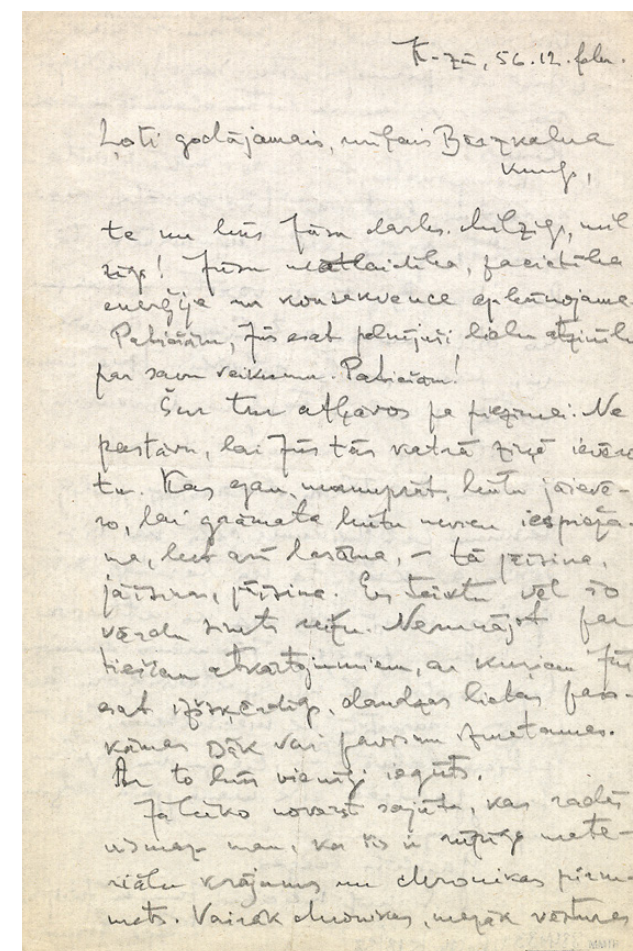 K-zū, 56.12. febr.
Ļoti godājamais, mīļais Bērzkalna
kungs,
te nu būs Jūsu darbs. Milzīgs, mil
zīgs! Jūsu neatlaidība, pacietība
enerģija un konsekvence apbrīnojama
Patiešām, Jūs esat pelnījuši lielu atzinību
par savu veikumu. Patiešām!
Šur tur atļāvos pa piezīmei. Ne
pastāvu, lai Jūs tās katrā ziņā ievēro
tu. Kas gan, manuprāt, būtu jāievē-
ro, lai grāmata būtu nevien iespieža-
ma, bet arī lasāma, – tā jāīsina,
jāīsina, jāīsina. Es teiktu vēl šo
vārdu simts reižu. Nerunājot par
tiešām atkārtojumiem, ar kuriem Jūs
esat izšķērdīgs, daudzas lietas pasa-
kāmas īsāk vai pavisam izmetamas.
Ar to būs vienīgi iegūts.
Jāteiko novērst sajūta, kas radās
vismaz man, ka šis ir rūpīgs mate-
riālu krājums un chronikas pirm-
mets. Vairāk chronikas, mazāk vēstures